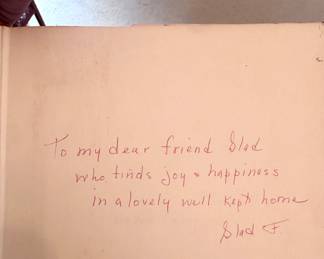 To my dear friend Glad
who finds joy & happiness
in a lovely well kept home
Glad F.